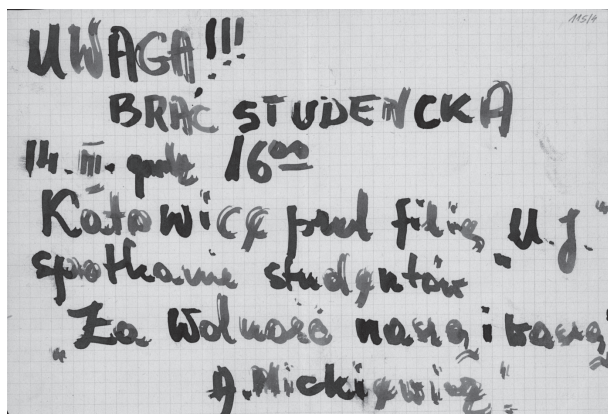 115/4
UWAGA!!!
BRAĆ STUDENCKA
14. III. godz 16⁰⁰
Katowice przed filią "U.J."
spotkanie studentów
"Za Wolność naszą i waszą"
A. Mickiewicz